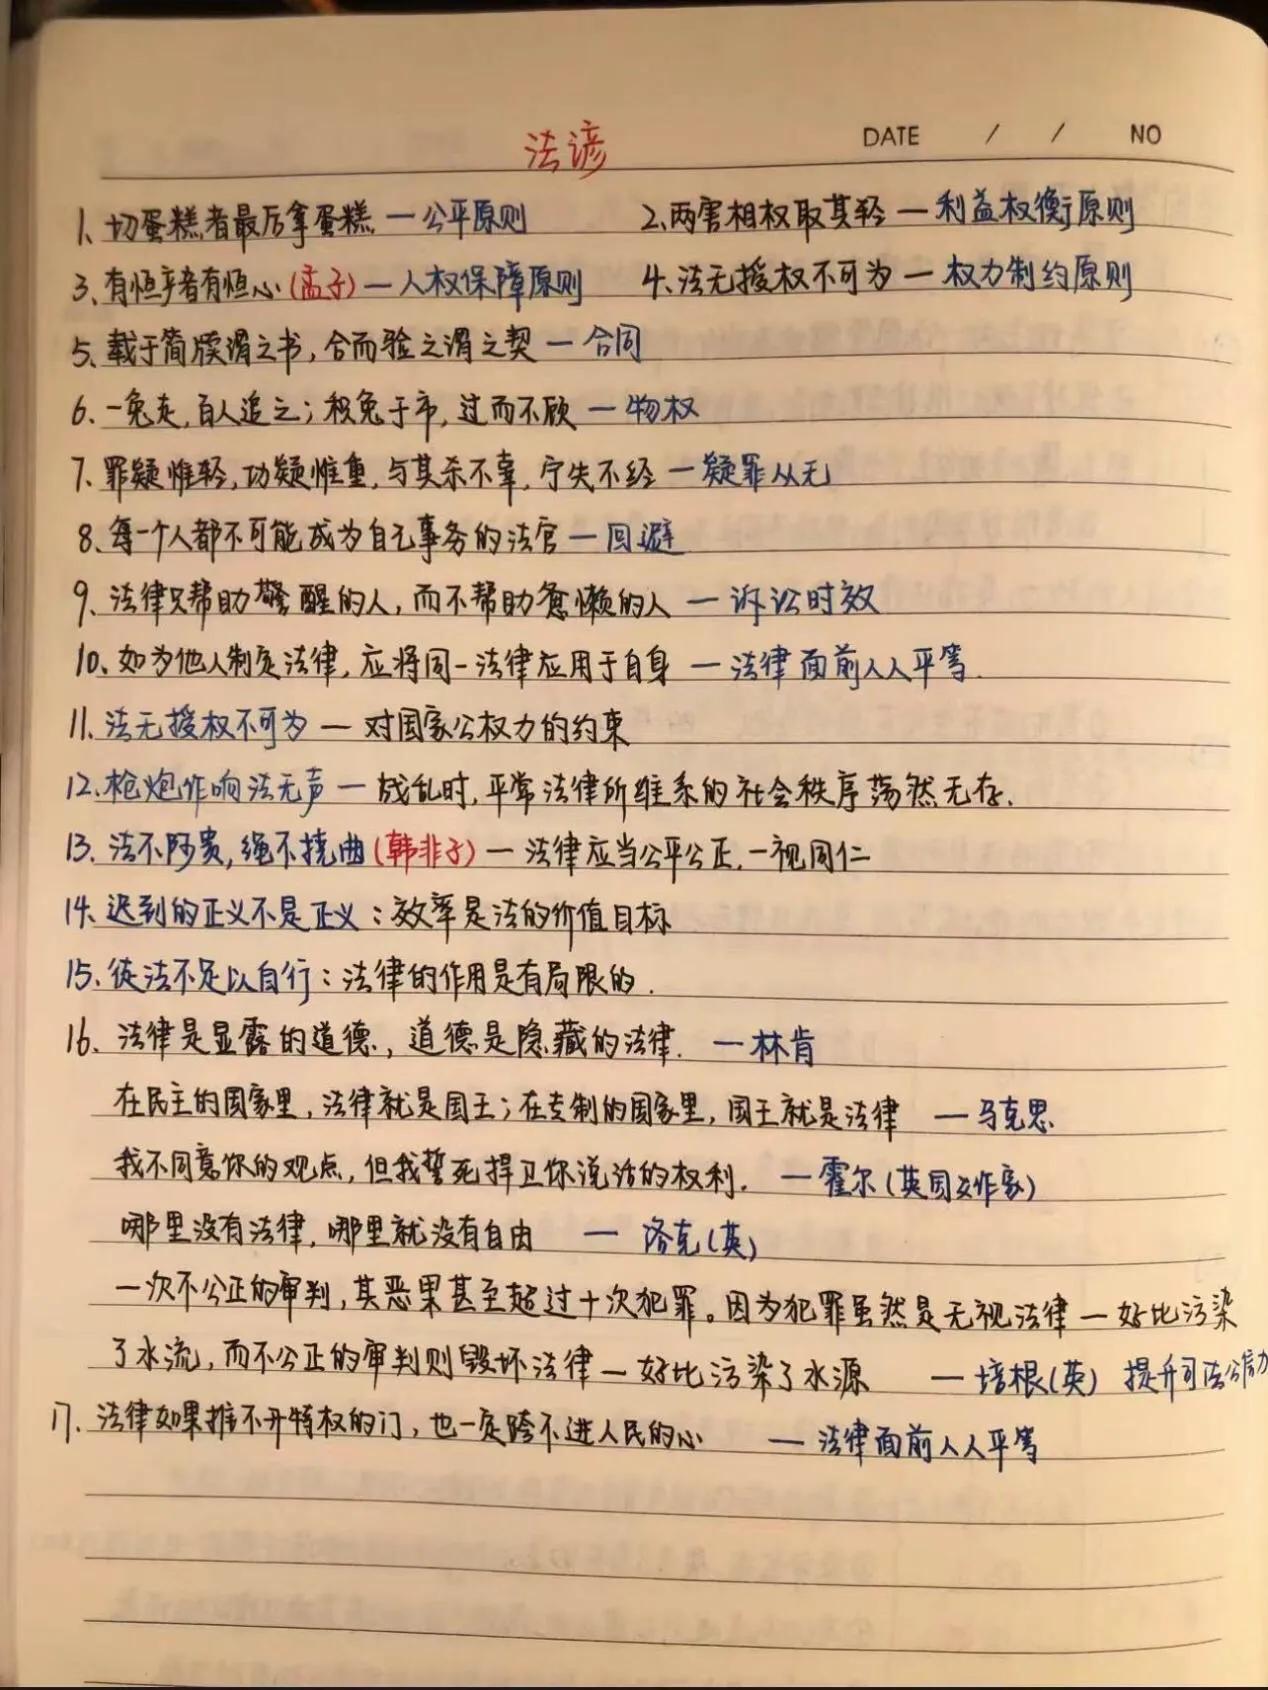 法谚 DATE / / NO
1、切蛋糕者最后拿蛋糕 — 公平原则 2、两害相权取其轻 — 利益权衡原则
3、有恒产者有恒心(孟子) — 人权保障原则 4、法无授权不可为 — 权力制约原则
5、载于简牍谓之书,合而验之谓之契 — 合同
6、一兔走,百人追之;积兔于市,过而不顾 — 物权
7、罪疑惟轻,功疑惟重,与其杀不辜,宁失不经 — 疑罪从无
8、每一个人都不可能成为自己事务的法官 — 回避
9、法律只帮助警醒的人,而不帮助怠懒的人 — 诉讼时效
10、如为他人制定法律,应将同一法律应用于自身 — 法律面前人人平等.
11、法无授权不可为 — 对国家公权力的约束
12、枪炮作响法无声 — 战乱时,平常法律所维系的社会秩序荡然无存.
13、法不阿贵,绳不挠曲(韩非子) — 法律应当公平公正,一视同仁
14、迟到的正义不是正义:效率是法的价值目标
15、徒法不足以自行:法律的作用是有局限的.
16、法律是显露的道德,道德是隐藏的法律. — 林肯
在民主的国家里,法律就是国王;在专制的国家里,国王就是法律 — 马克思
我不同意你的观点,但我誓死捍卫你说话的权利. — 霍尔(英国女作家)
哪里没有法律,哪里就没有自由 — 洛克(英)
一次不公正的审判,其恶果甚至超过十次犯罪。因为犯罪虽然是无视法律 — 好比污染
了水流,而不公正的审判则毁坏法律 — 好比污染了水源 — 培根(英) 提升司法公信力
17、法律如果推不开特权的门,也一定跨不进人民的心 — 法律面前人人平等